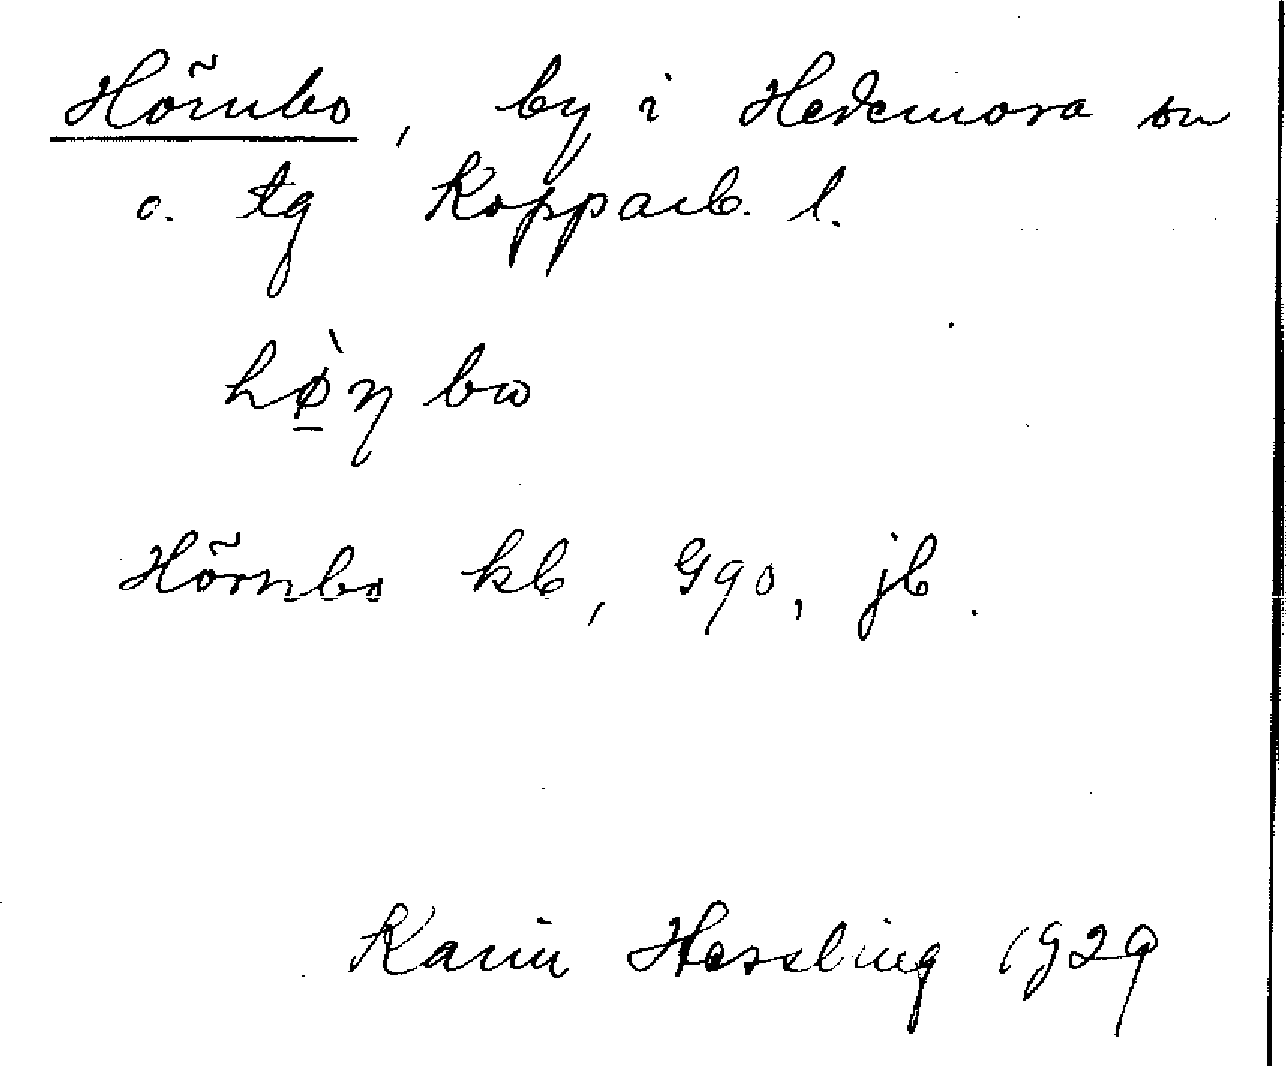 Hörnbo, by i Hedemora sn
o. tg Kopparb. l.
hø̠̀ŋ bω
Hörnbo kb, Gqo, jb.
Karin Hessling 1929